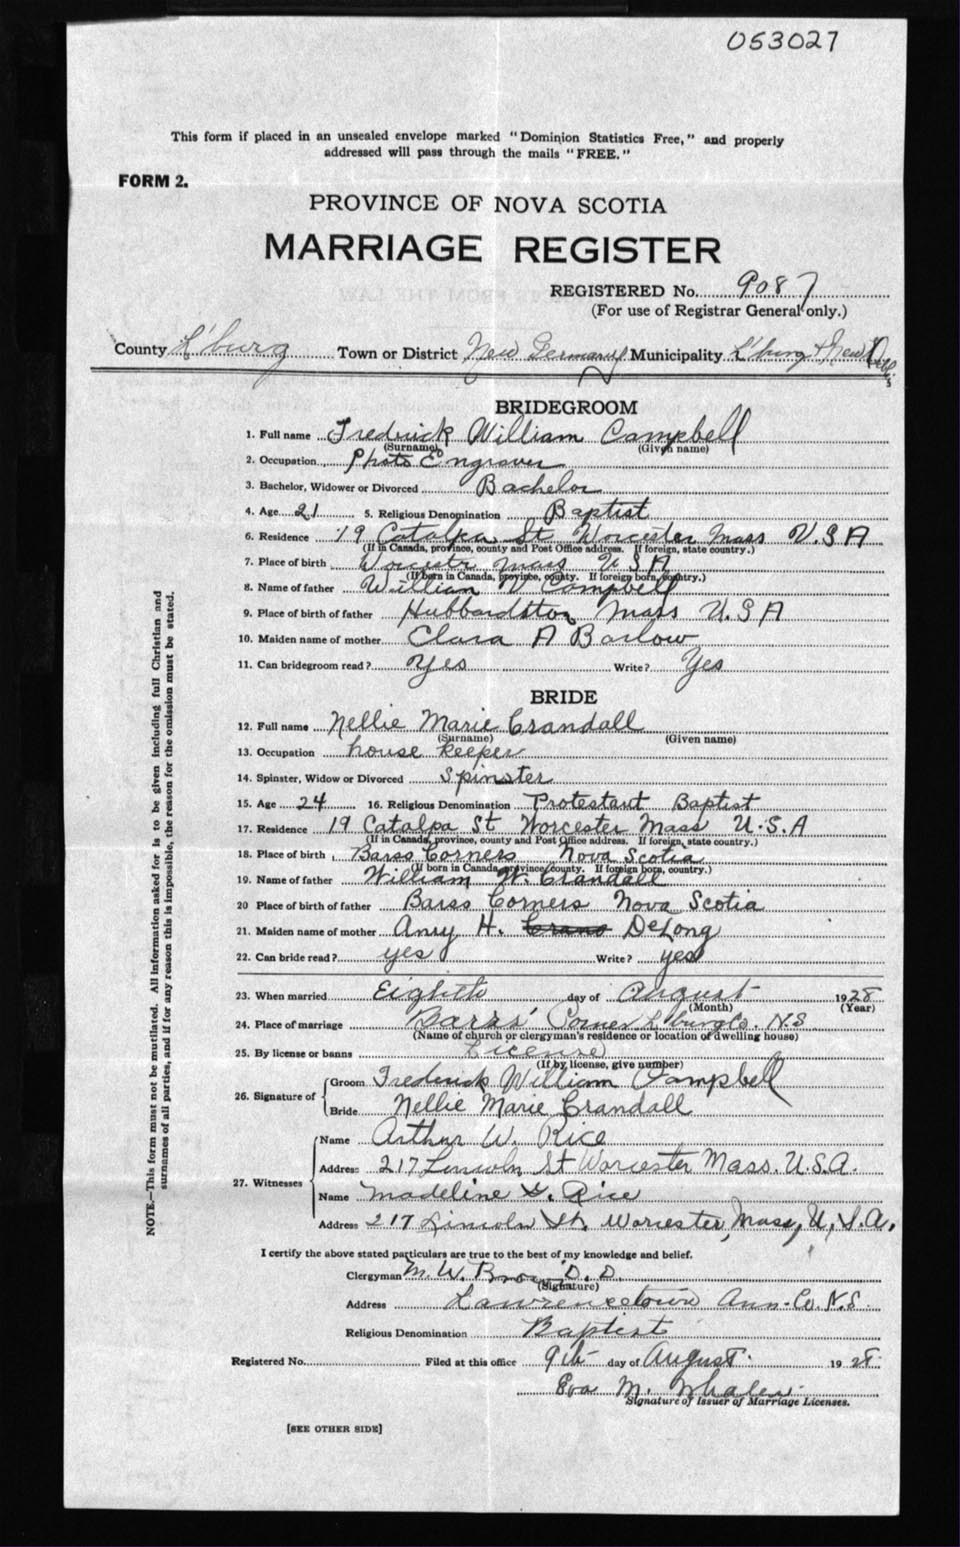 053027
This form if placed in an unsealed envelope marked "Dominion Statistics Free," and properly
addressed will pass through the mails "FREE."
FORM 2.
PROVINCE OF NOVA SCOTIA
MARRIAGE REGISTER
REGISTERED No. 9087
(For use of Registrar General only.)
County L'burg Town or District New Germany Municipality L'burg & New Dub.
BRIDEGROOM
1. Full name Fredrick William Campbell
(Surname) (Given name)
2. Occupation Photo Engraver
3. Bachelor, Widower or Divorced Bachelor
4. Age 21 5. Religious Denomination Baptist
6. Residence 19 Catalpa St Worcester Mass U.S A
(If in Canada, province, county and Post Office address. If foreign, state country.)
7. Place of birth Worcester Mass U S A
(If born in Canada, province, county. If foreign born, country.)
8. Name of father William Campbell
9. Place of birth of father Hubbardston Mass U.S A
10. Maiden name of mother Clara A Barlow
11. Can bridegroom read? Yes Write? Yes
BRIDE
12. Full name Nellie Marie Crandall
(Surname) (Given name)
13. Occupation house keeper
14. Spinster, Widow or Divorced Spinster
15. Age 24 16. Religious Denomination Protestant Baptist
17. Residence 19 Catalpa St Worcester Mass U.S.A
(If in Canada, province, county and Post Office address. If foreign, state country.)
18. Place of birth Barss Corners Nova Scotia
(If born in Canada, province, county. If foreign born, country.)
19. Name of father William W. Crandall
20 Place of birth of father Barss Corners Nova Scotia
21. Maiden name of mother Amy H. DeLong
22. Can bride read? yes Write? yes
23. When married Eighth day of August 1928
(Month) (Year)
24. Place of marriage Barss' Corner L'burg Co. N.S
(Name of church or clergyman's residence or location of dwelling house)
25. By license or banns License
(If by license, give number)
26. Signature of Groom Frederick William Campbell
Bride Nellie Marie Crandall
27. Witnesses Name Arthur W. Rice
Address 217 Lincoln St Worcester Mass. U.S.A.
Name Madeline G. Rice
Address 217 Lincoln St. Worcester, Mass, U, S.A.
I certify the above stated particulars are true to the best of my knowledge and belief.
Clergyman M. W. Brown D. D.
(Signature)
Address Lawrencetown Ann. Co. N.S.
Religious Denomination Baptist
Registered No. Filed at this office 9th day of August 1928
Eva M. Whalen
Signature of Issuer of Marriage Licenses.
[SEE OTHER SIDE]
NOTE.—This form must not be mutilated. All information asked for is to be given including full Christian and
surnames of all parties, and if for any reason this is impossible, the reason for the omission must be stated.